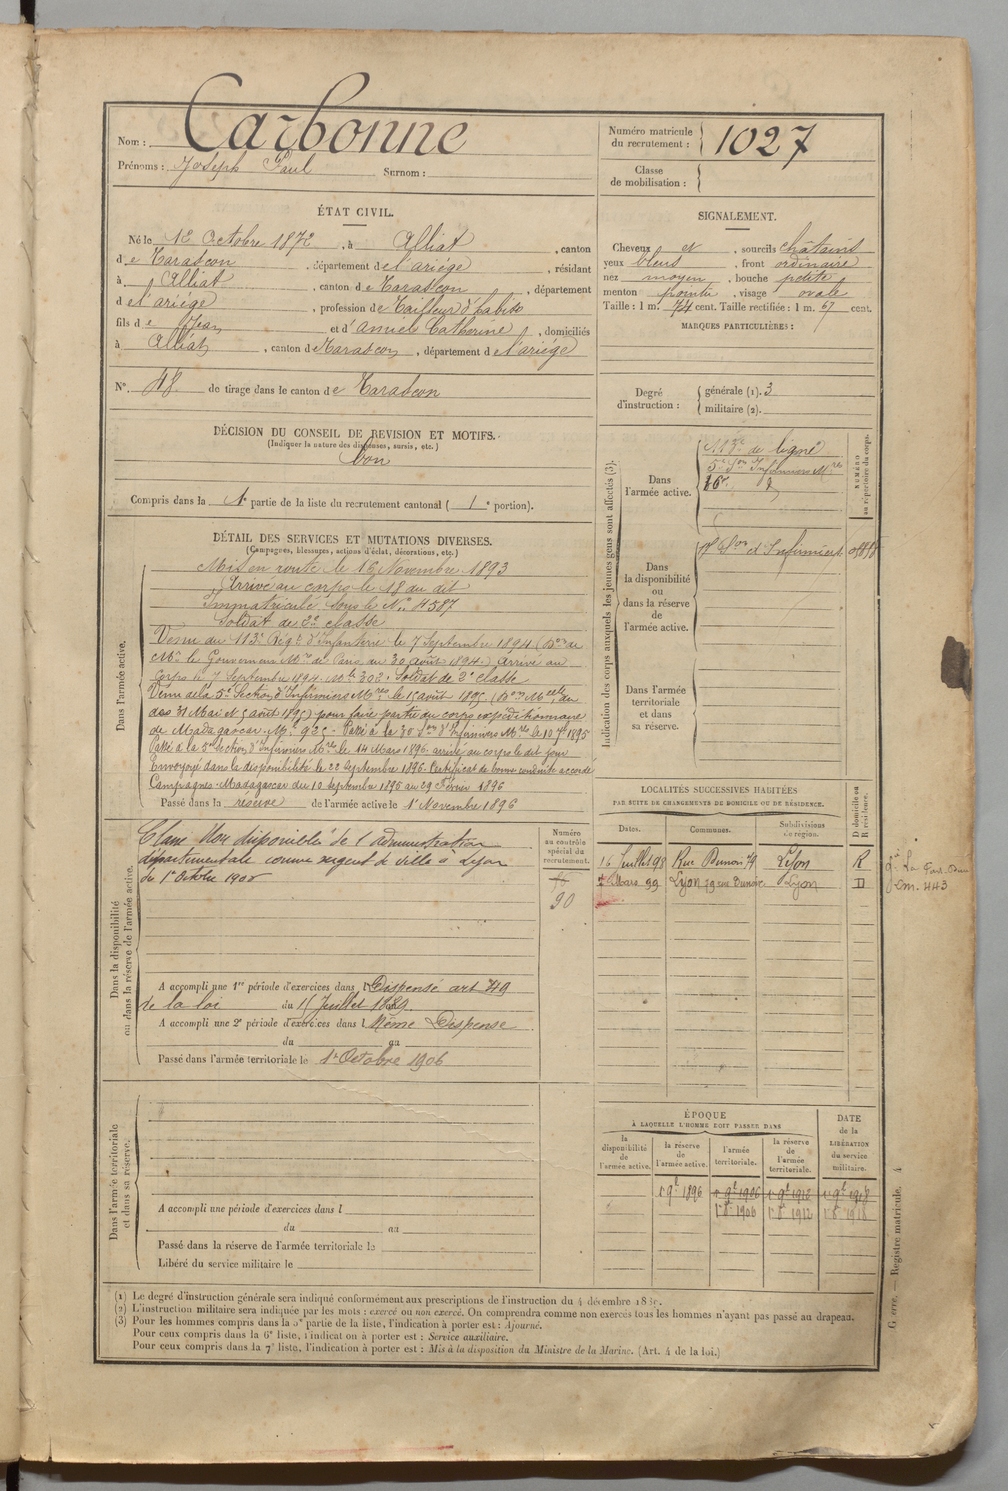 Nom : Carbonne
Prénoms : Joseph Paul Surnom :
Numéro matricule du recrutement : 1027
Classe de mobilisation :
ÉTAT CIVIL.
Né le 12 Octobre 1872, à Alliat, canton
de Tarascon, département de l'ariége, résidant
à Alliat, canton de Tarascon, département
de l'ariége, profession de Tailleur d'habits
fils de Jean et d'amiel Catherine, domiciliés
à Alliat, canton de Tarascon, département de l'ariége
N° 48 de tirage dans le canton de Tarascon
SIGNALEMENT.
Cheveux et, sourcils chatains
yeux bleus, front ordinaire
nez moyen, bouche petite
menton pointu, visage ovale
Taille : 1 m. 74 cent. Taille rectifiée : 1 m. 67 cent.
MARQUES PARTICULIÈRES :
Degré d'instruction : générale (1). 3
militaire (2).
DÉCISION DU CONSEIL DE REVISION ET MOTIFS.
(Indiquer la nature des dispenses, sursis, etc.)
bon
Compris dans la 1e partie de la liste du recrutement cantonal ( 1e portion).
DÉTAIL DES SERVICES ET MUTATIONS DIVERSES.
(Campagnes, blessures, actions d'éclat, décorations, etc.)
Dans l'armée active.
Mis en route le 16 Novembre 1893
Arrivé au corps le 18 du dit
Immatriculé sous le N° 4587
Soldat de 2e classe
Venu du 113e Régt d'Infanterie le 7 Septembre 1894 (
Mre le Gouverneur Mre de Paris du 30 août 1894) arrivé au
Corps le 7 Septembre 1894. Mle 302. Soldat de 2e classe
Venu de la 5e Section d'Infirmiers Mres le 15 août 1895
des 31 Mai et 5 août 1895) pour faire partie du corps expéditionnaire
de Madagascar. Mle 925 - Passé à la 30 Son d'Infirmiers Mres le 10 7bre 1895
Passé à la 5e Section d'Infirmiers Mres le 14 Mars 1896. arrivé au corps le dit jour
Envoyé dans la disponibilité le 22 Septembre 1896. Certificat de bonne conduite accordé
Campagnes. Madagascar du 10 Septembre 1895 au 29 Février 1896
Passé dans la réserve de l'armée active le 1r Novembre 1896
Indication des corps auxquels les jeunes gens sont affectés (3).
Dans l'armée active.
113e de ligne
5e Son Infirmiers Mres
NUMÉRO au répertoire du corps.
Dans la disponibilité ou dans la réserve de l'armée active.
Son d'Infirmiers
Dans l'armée territoriale et dans sa réserve.
Dans la disponibilité ou dans la réserve de l'armée active.
Classé Non disponible de l'administration
départementale comme sergent de ville à Lyon
du 1r Octobre 1900
Numéro au contrôle spécial du recrutement.
90
A accompli une 1re période d'exercices dans l Dispensé art 49
de la loi du 15 Juillet 1889.
A accompli une 2e période d'exercices dans l Même Dispense
du au
Passé dans l'armée territoriale le 1r Octobre 1906
LOCALITÉS SUCCESSIVES HABITÉES
PAR SUITE DE CHANGEMENTS DE DOMICILE OU DE RÉSIDENCE.
Dates. Communes. Subdivisions de région. D domicile ou R résidence.
16 Juillet 98 Rue Dunoir 79 Lyon R
Mars 99 Lyon 79 rue Dunoir Lyon D
Dans l'armée territoriale et dans sa réserve.
A accompli une période d'exercices dans l
du au
Passé dans la réserve de l'armée territoriale le
Libéré du service militaire le
ÉPOQUE
À LAQUELLE L'HOMME DOIT PASSER DANS
la disponibilité de l'armée active. la réserve de l'armée active. l'armée territoriale. la réserve de l'armée territoriale.
DATE de la LIBÉRATION du service militaire.
1r 9bre 1896 1r 9bre 1906 1r 9bre 1912 1r 9bre 1918
1r 8bre 1906 1r 8bre 1912 1r 8bre 1918
(1) Le degré d'instruction générale sera indiqué conformément aux prescriptions de l'instruction du 4 décembre
(2) L'instruction militaire sera indiquée par les mots : exercé ou non exercé. On comprendra comme non exercés tous les hommes n'ayant pas passé au drapeau.
(3) Pour les hommes compris dans la 5e partie de la liste, l'indication à porter est : Ajourné.
Pour ceux compris dans la 6e liste, l'indication à porter est : Service auxiliaire.
Pour ceux compris dans la 7e liste, l'indication à porter est : Mis à la disposition du Ministre de la Marine. (Art. 4 de la loi.)
Guerre. — Registre matricule. 4